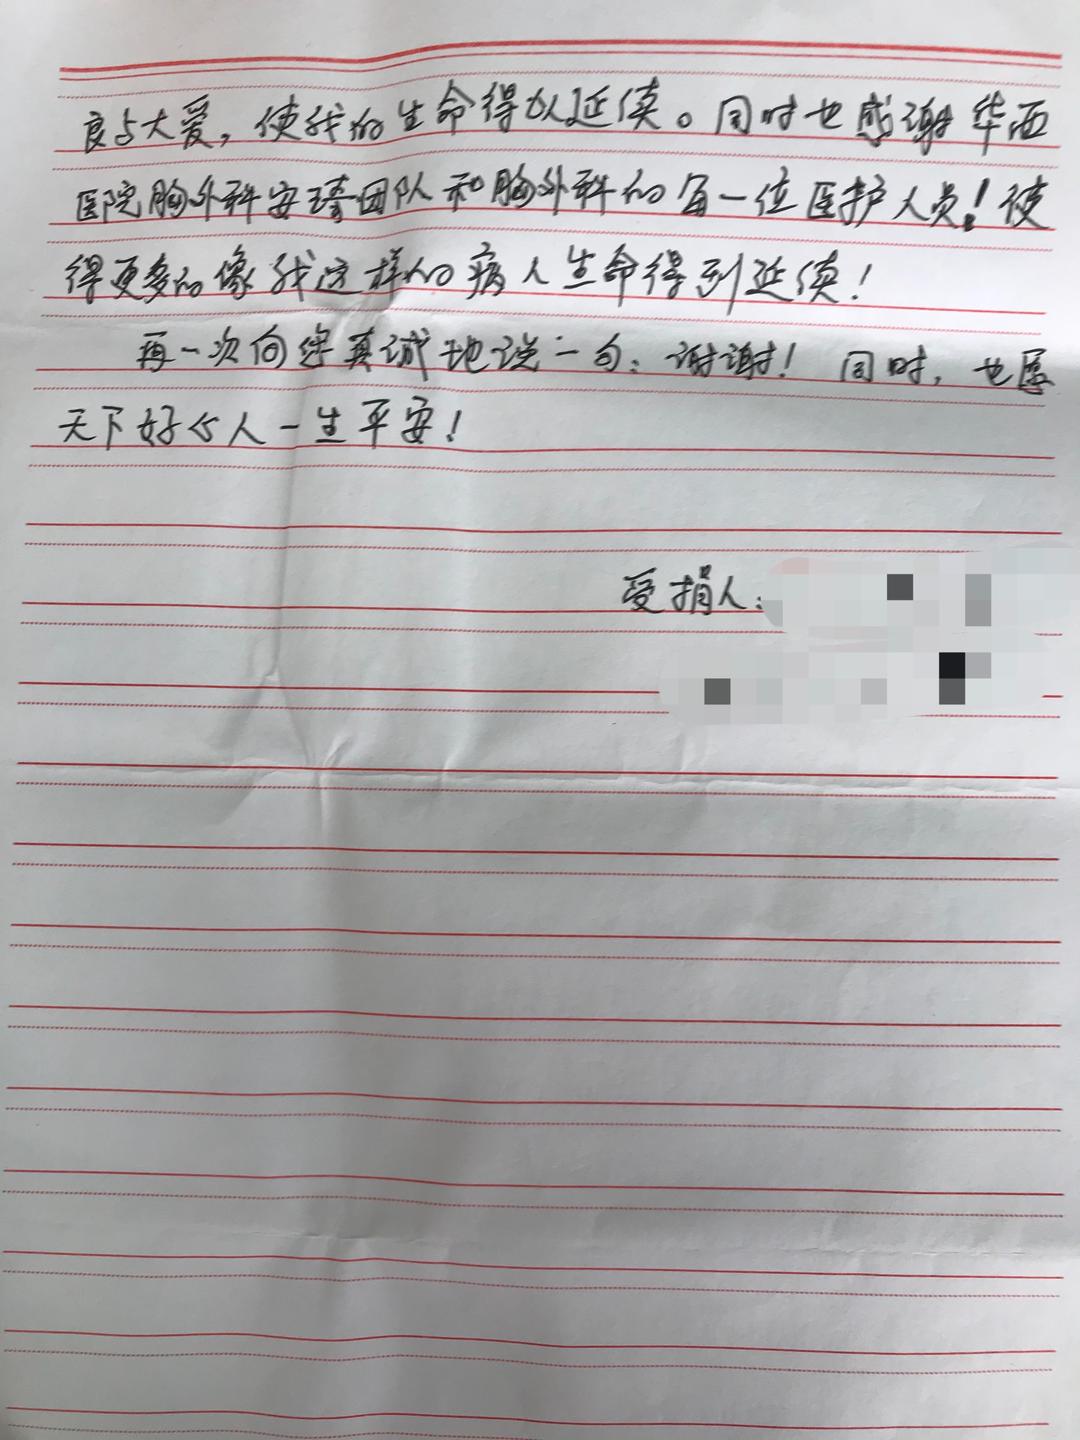 良与大爱，使我的生命得以延续。同时也感谢华西
医院胸外科安琦团队和胸外科的每一位医护人员！使
得更多的像我这样的病人生命得到延续！
再一次向您真诚地说一句：谢谢！同时，也愿
天下好人一生平安！
受捐人：